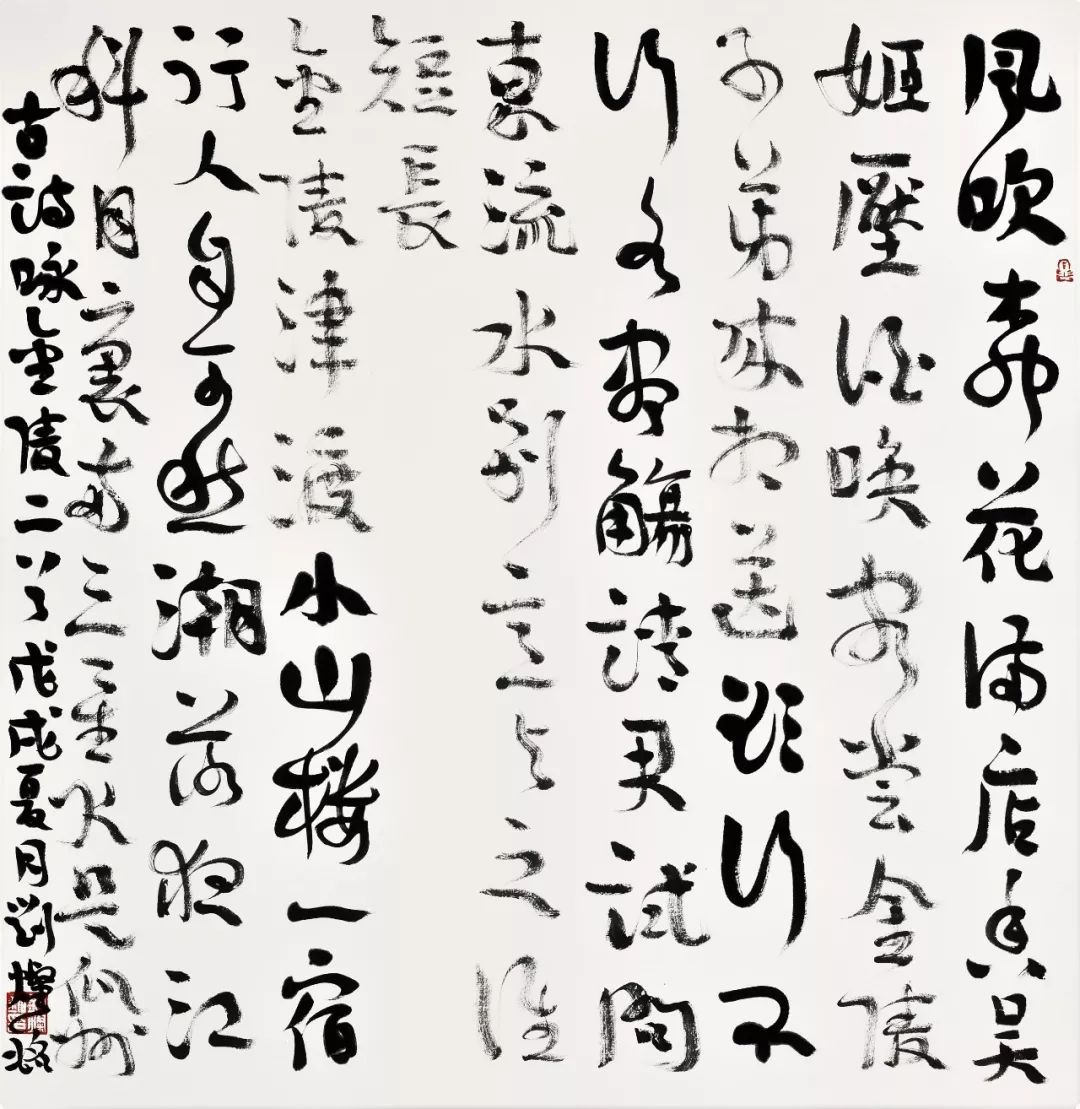 風吹柳花滿店香吳
姬壓酒喚客嘗金陵
子弟來相送欲行不
行各盡觴請君試問
東流水別意與之誰
短長
金陵津渡小山樓一宿
行人自可愁潮落夜江
斜月裏兩三星火是瓜州
古詩咏金陵二首戊戌夏月劉燦銘